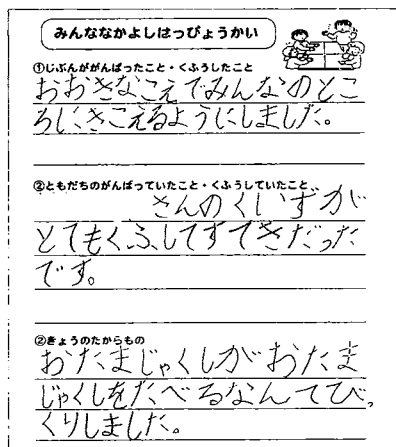 みんななかよしはっぴょうかい
①じぶんががんばったこと・くふうしたこと
おおきなこえでみんなのとこ
ろにきこえるようにしました。
②ともだちのがんばっていたこと・くふうしていたこと
さんのくいずが
とてもくふしてすてきだった
です。
②きょうのたからもの
おたまじゃくしがおたま
じゃくしをたべるなんてびっ
くりしました。